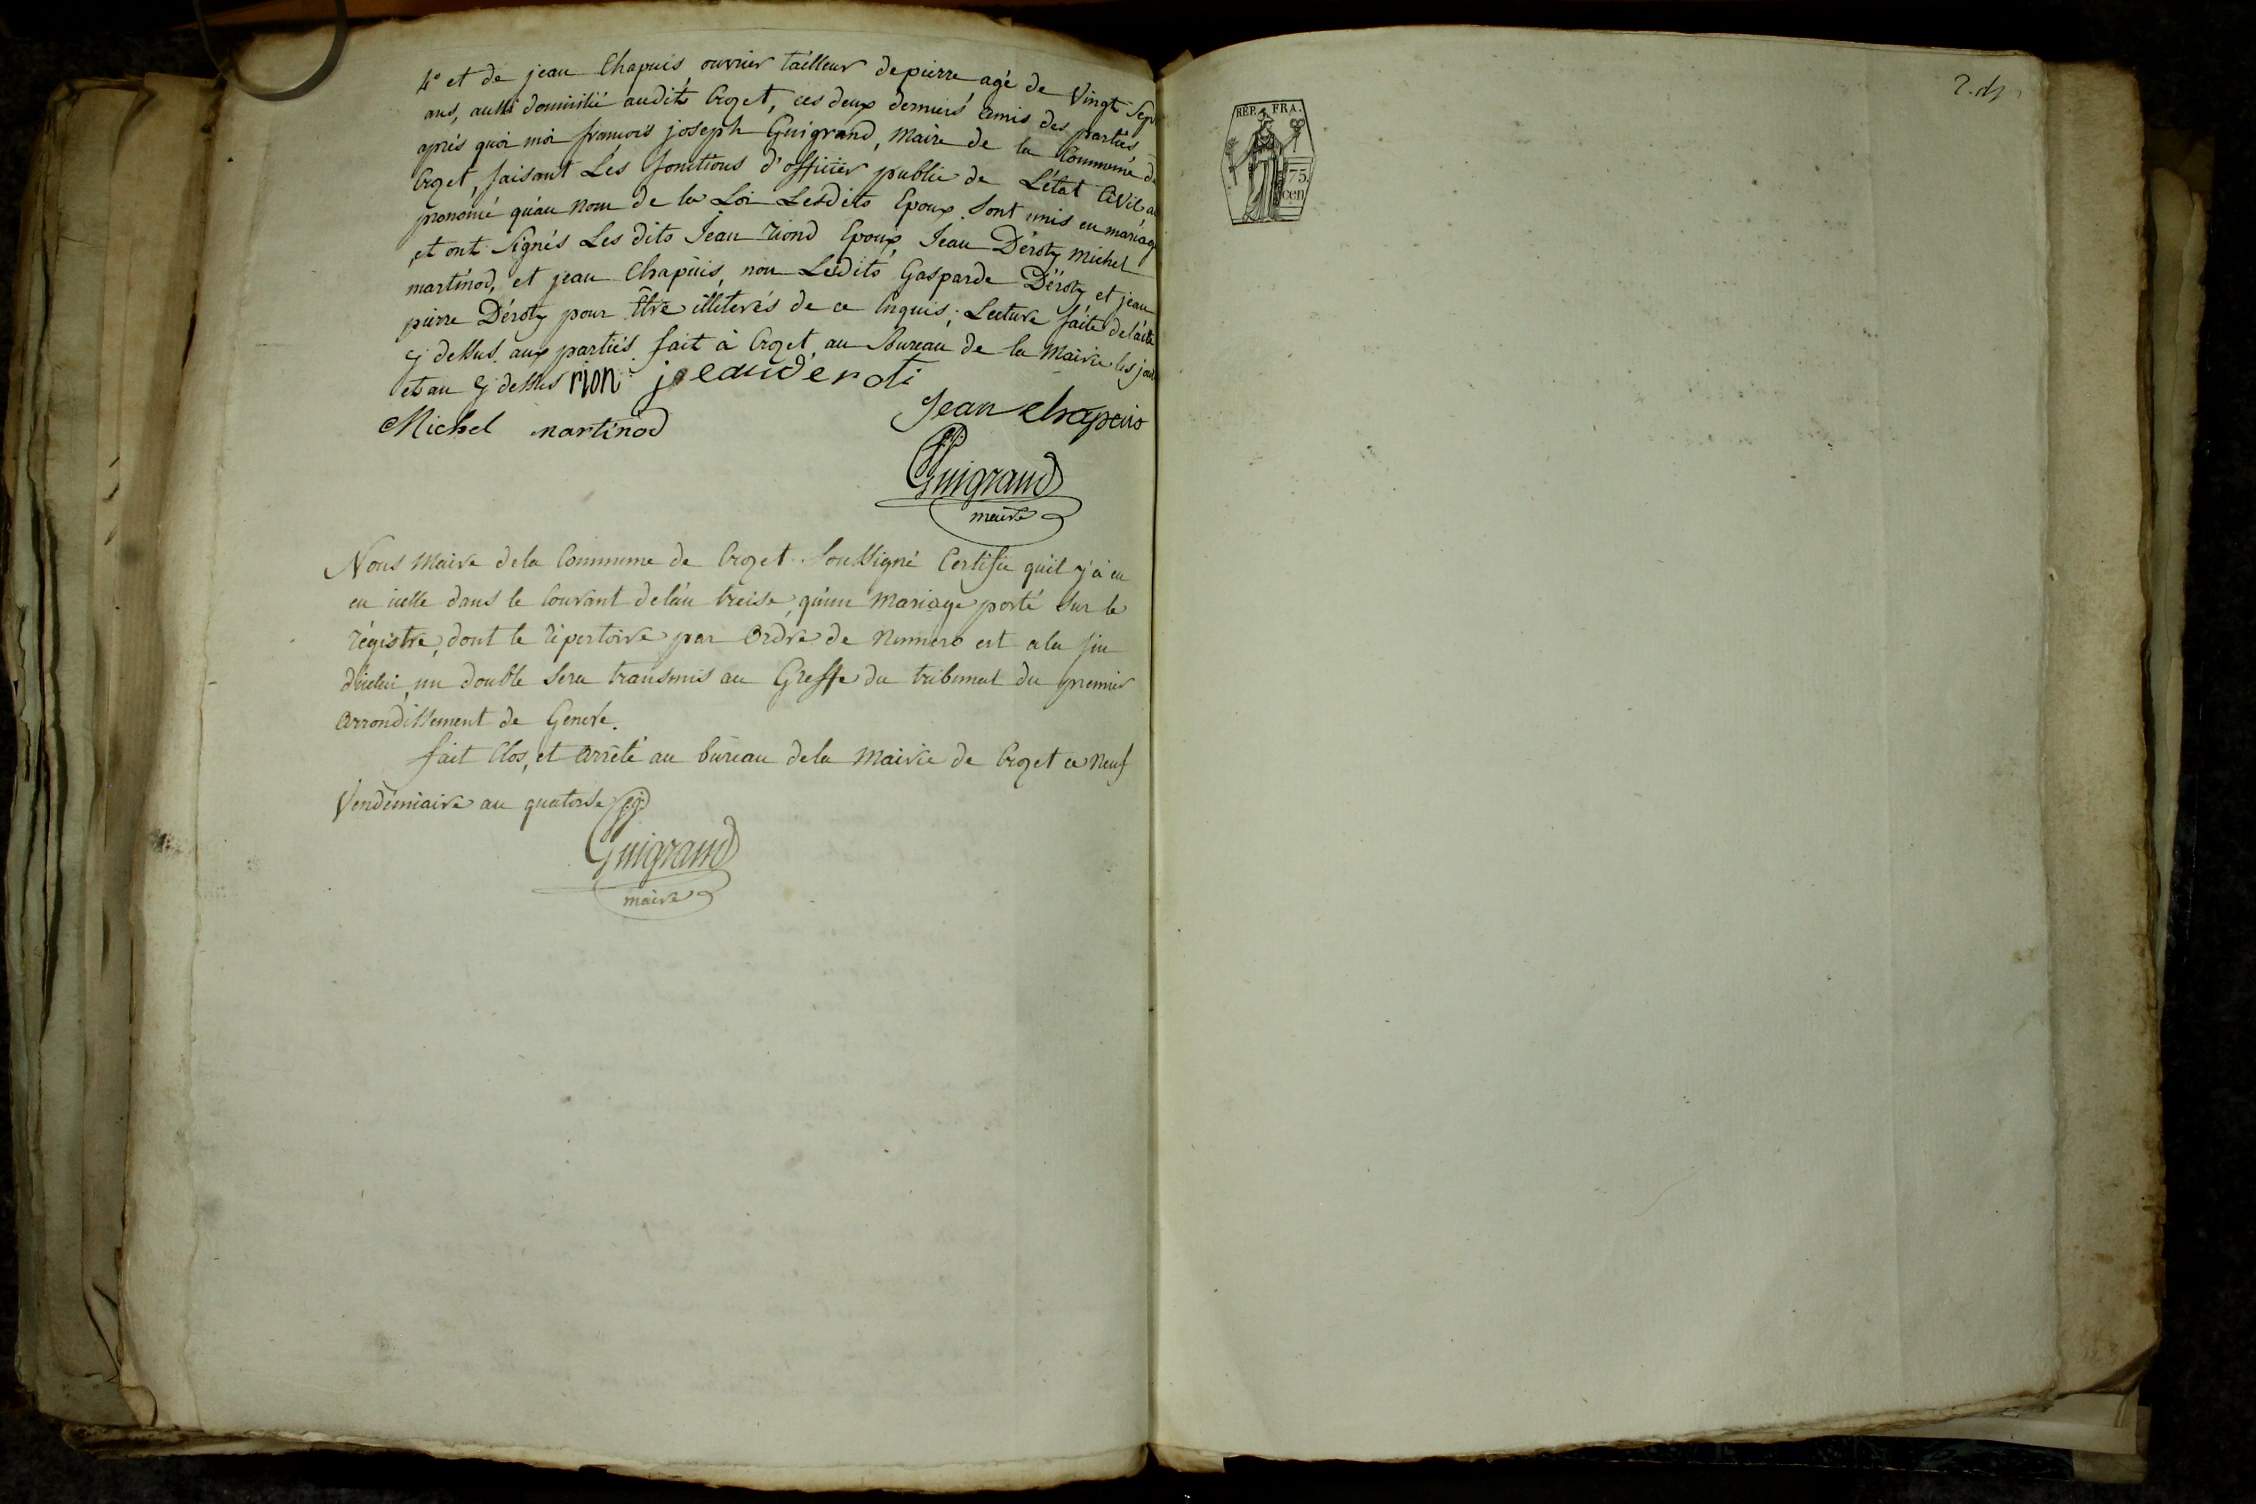 4° et de jean Chapuis, ouvrier tailleur de pierre, agé de Vingt Sept
ans, aussi domicilié audits Crozet, ces deux derniers amis des parties
après quoi moi francois joseph Guigrand, Maire de la Commune de
Crozet, faisant Les fonctions d'officier public de L'état Civil, ai
prononcé qu'au nom de la Loi Lesdits Epoux Sont unis en mariage
et ont Signés Les dits Jean riond Epoux, Jean Déroty Michel
martinod, et jean Chapuis, non Ledits Gasparde Déroty, et jean
pierre Déroty pour Être illiterés de ce Enquis; Lecture faite de l'acte
cy dessus aux parties fait à Crozet au Bureau de la Mairie les jour
et an cy dessus rion jeanderoti
Jean chapuis
Michel martinod
Guigrand
maire
Nous Maire dela Commune de Crozet Soussigné Certifie quil y'a eu
en icelle dans le Courant de l'an treise, qu'un Mariage porté Sur le
régistre, dont le répertoire par Ordre de Numero est a la fin
d'icelui, un double Sera transmis au Greffe du tribunal du premier
Arrondissement de Genève.
fait Clos, et Arrêté au bureau dela Mairie de Crozet ce Neuf
Vendémiaire an quatorse
Guigrand
maire
REP. FRA.
75.
cen